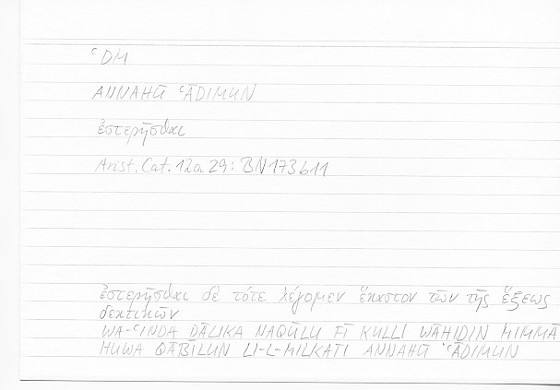 ʿDM
ANNAHŪ ʿĀDIMUN
ἐστερῆσθαι
Arist. Cat. 12a 29: BN173b11
ἐστερῆσθαι δὲ τότε λέγομεν ἕκαστον τῶν τῆς ἕξεως
δεκτικῶν
WA-ʿINDA ḎĀLIKA NAQŪLU FĪ KULLI WĀḤIDIN MIMMĀ
HUWA QĀBILUN LI-L-MILKATI ANNAHŪ ʿĀDIMUN